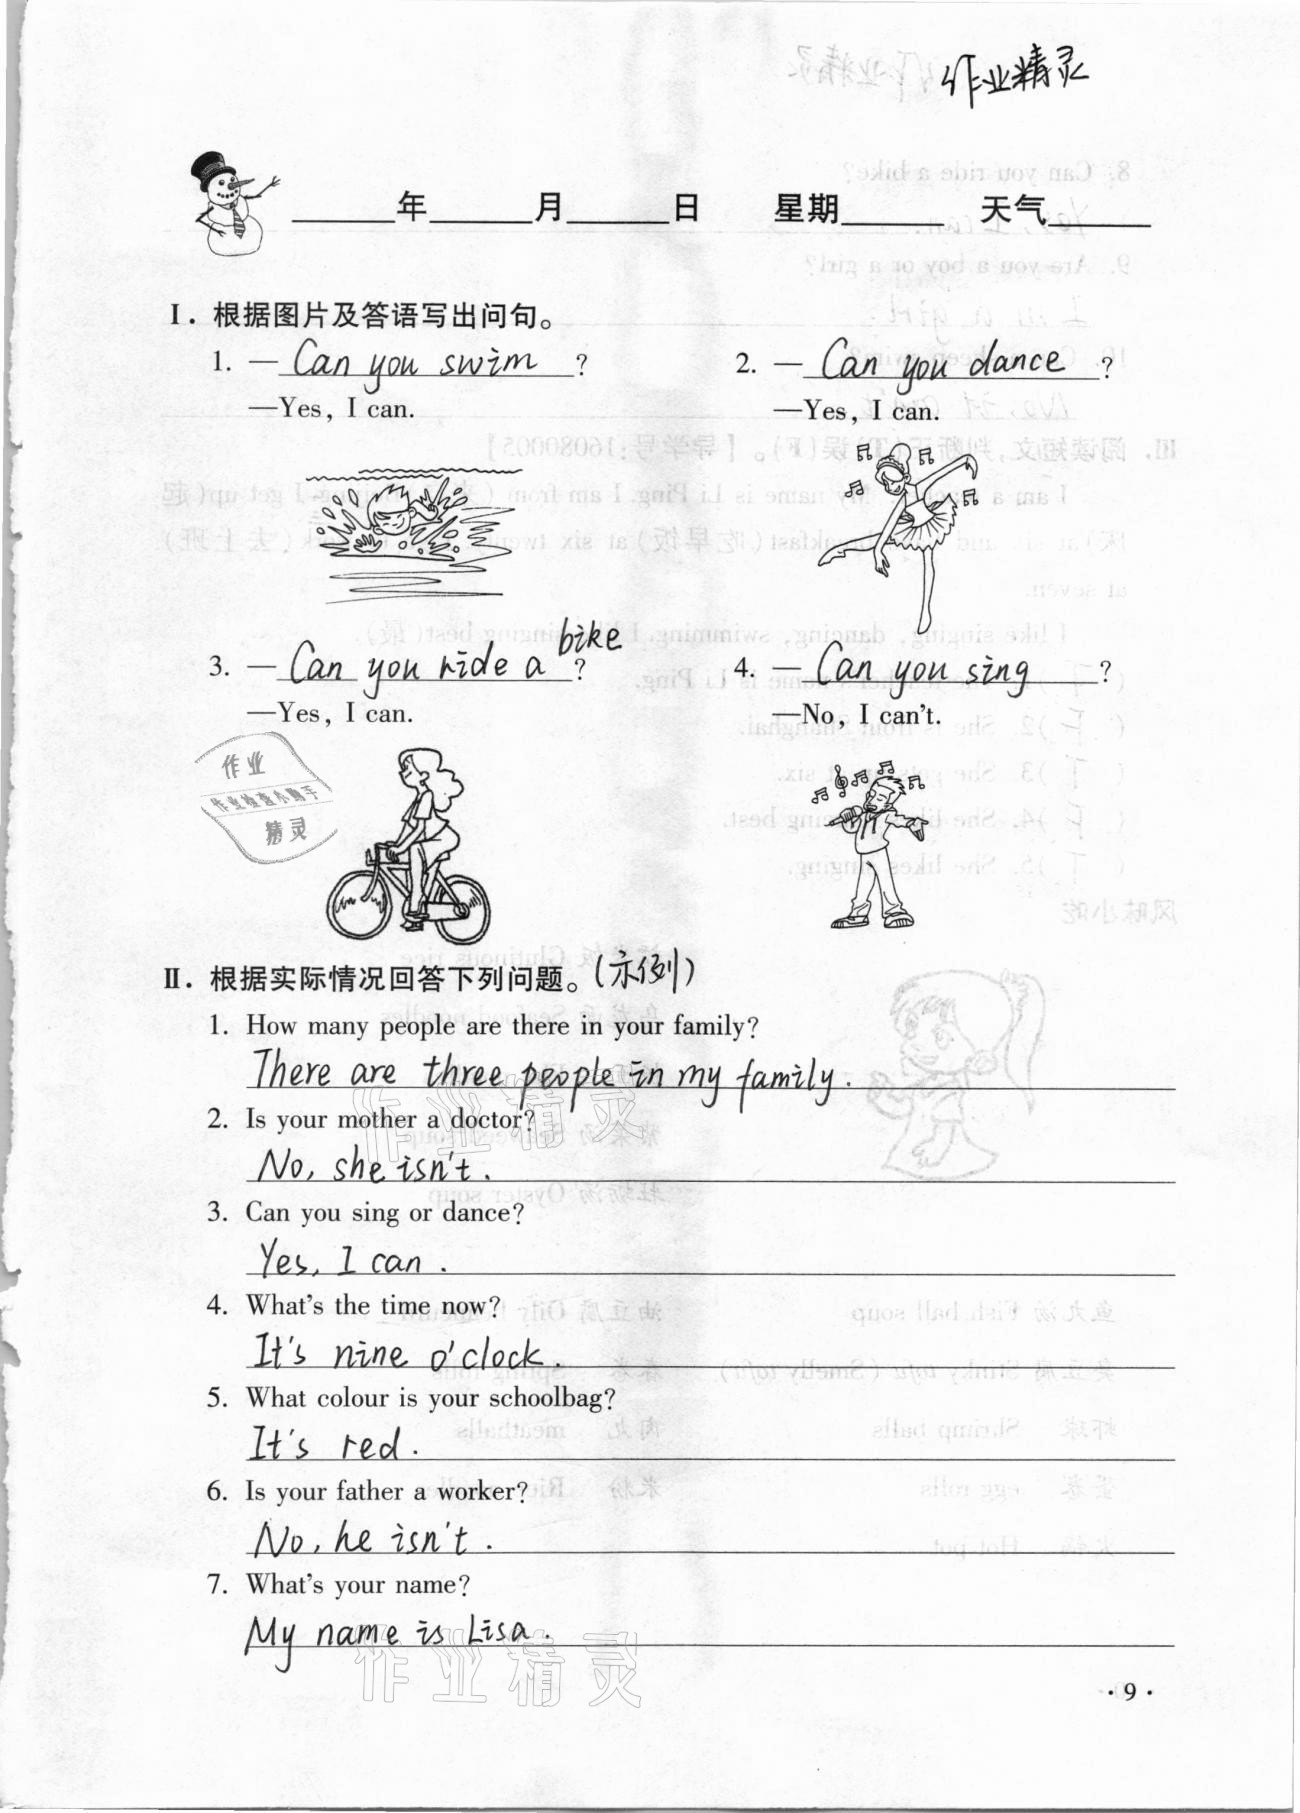 作业精灵
____年____月____日 星期____ 天气____
Ⅰ. 根据图片及答语写出问句。
1. — Can you swim ?
—Yes, I can.
2. — Can you dance ?
—Yes, I can.
3. — Can you ride a bike ?
—Yes, I can.
4. — Can you sing ?
—No, I can't.
作业
作业检查小助手
精灵
Ⅱ. 根据实际情况回答下列问题。(示例)
1. How many people are there in your family?
There are three people in my family.
2. Is your mother a doctor?
No, she isn't.
3. Can you sing or dance?
Yes, I can.
4. What's the time now?
It's nine o'clock.
5. What colour is your schoolbag?
It's red.
6. Is your father a worker?
No, he isn't.
7. What's your name?
My name is Lisa.
作业精灵
作业精灵
·9·